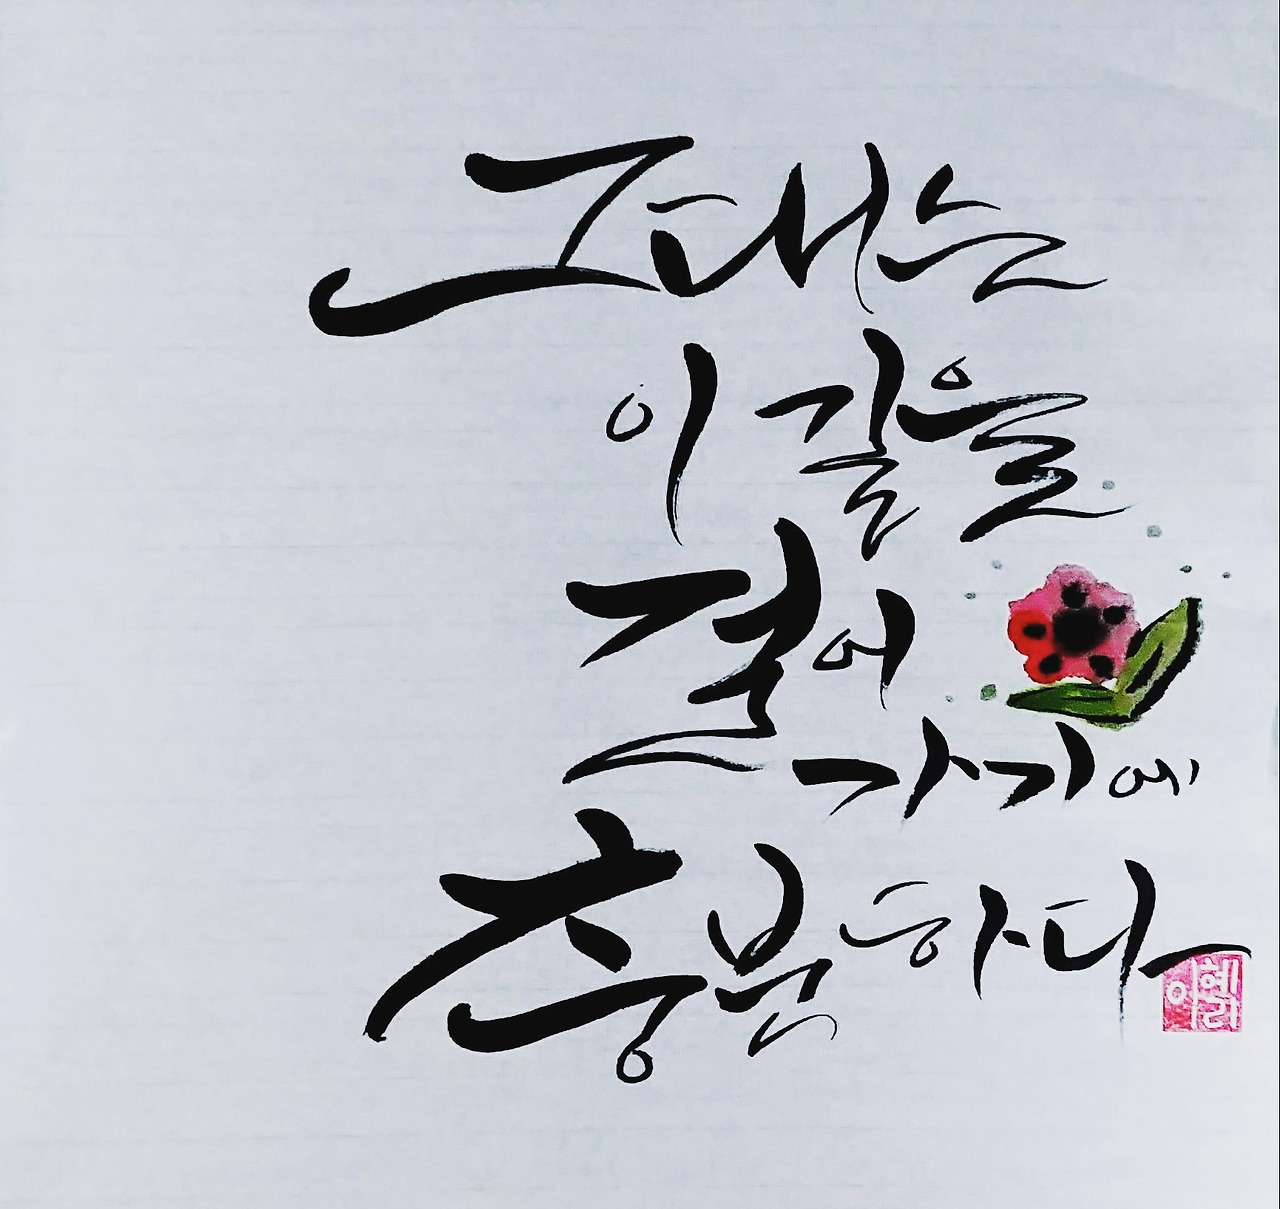 그대는
이 길을
걸어
가기에
충분하다